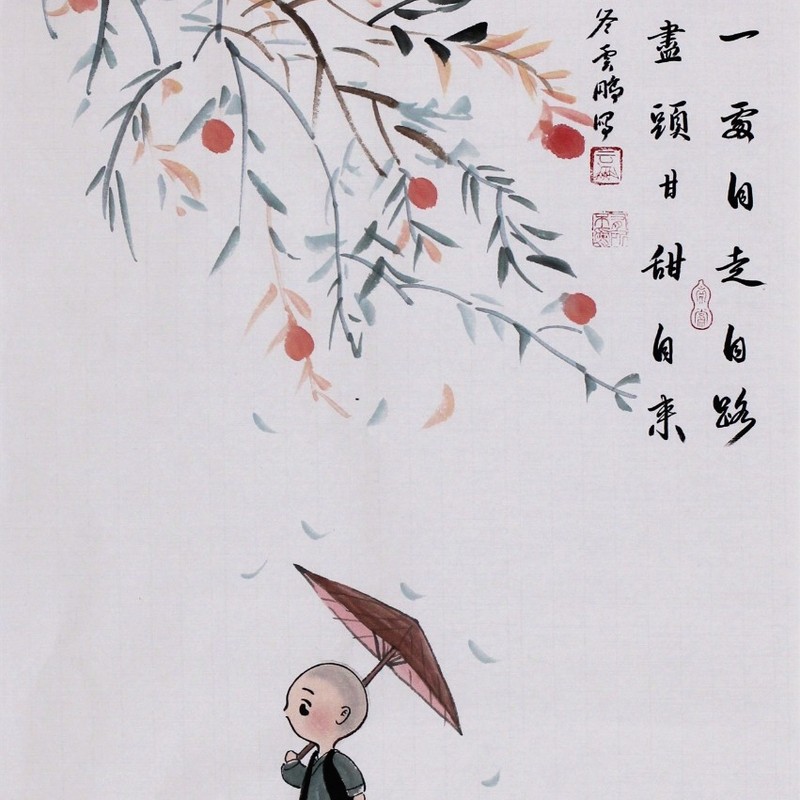 一處自走自路
盡頭甘甜自來
冬雲鵬寫